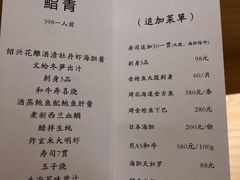 鮨青
398一人前
绍兴花雕酒渍牡丹虾海胆酱
文蛤冬笋出汁
刺身3品
和牛寿喜烧
酒蒸鲍鱼配鲍鱼肝酱
煮新西兰血鲷
醋拌生蚝
炸玄米大明虾
寿司7贯
玉子烧
（追加菜單）
寿司追加30一贯（大腹、海胆除外）
刺身3品 98元
金枪鱼大腹刺身 60/片
烤北海道金吉鱼 380元/条
烤金枪鱼下巴 280元
日本海胆 200元/份
熊A5和牛 580元/100g
海胆天妇罗 88元